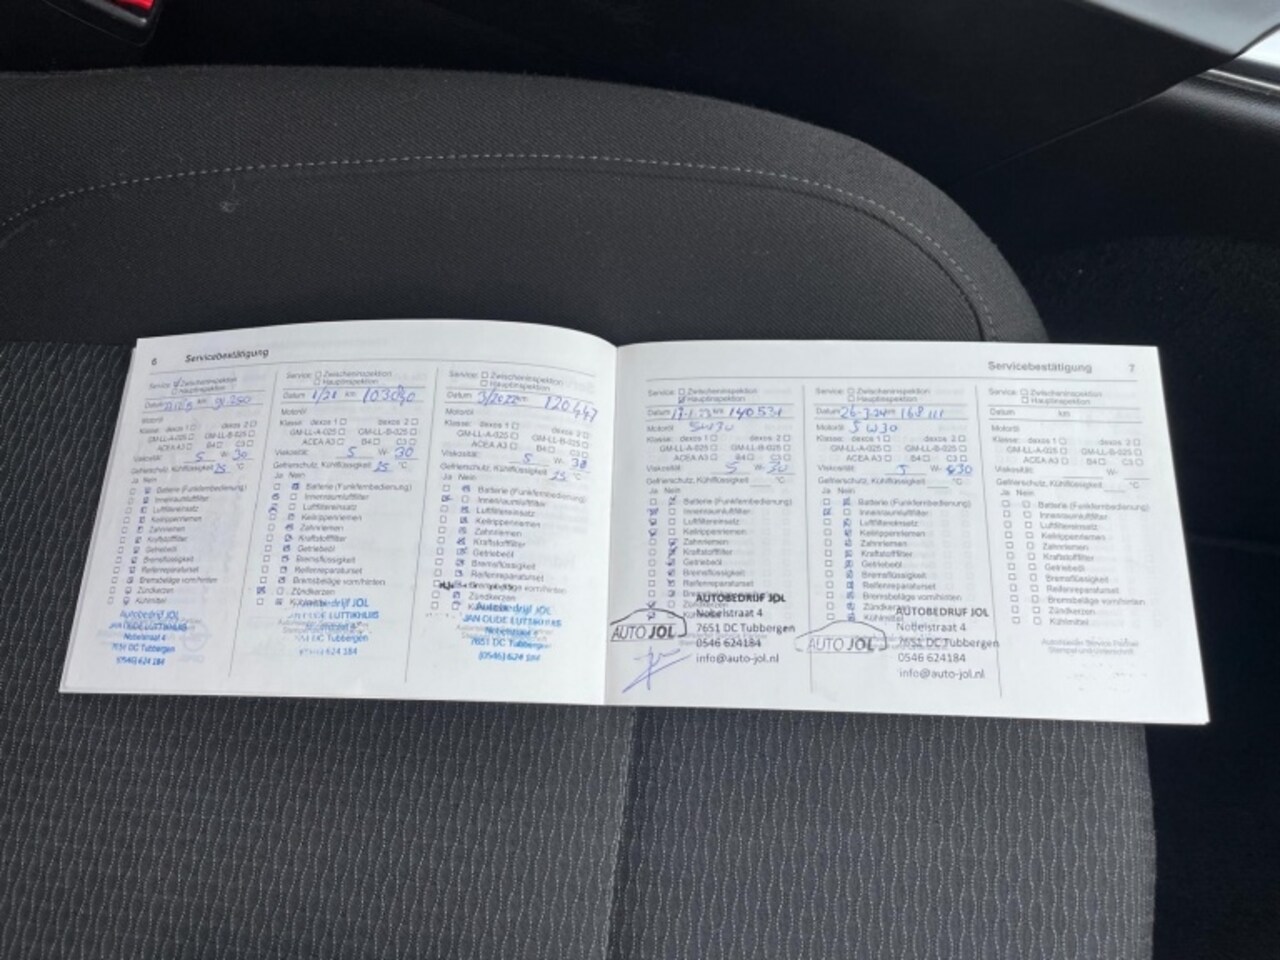 6 Servicebestätigung
Service: Zwischeninspektion
Hauptinspektion
Datum km 91.250
Motoröl
Klasse: dexos 1 dexos 2
GM-LL-A-025 GM-LL-B-025
ACEA A3 B4 C3
Viskosität: 5 W- 30
Gefrierschutz, Kühlflüssigkeit 25 °C
Ja Nein
Batterie (Funkfernbedienung)
Innenraumluftfilter
Luftfiltereinsatz
Keilrippenriemen
Zahnriemen
Kraftstofffilter
Getriebeöl
Bremsflüssigkeit
Reifenreparaturset
Bremsbeläge vorn/hinten
Zündkerzen
Kühlmittel
Autobedrijf JOL
JAN OUDE LUTTIKHUIS
Nobelstraat 4
7651 DC Tubbergen
(0546) 624 184
Service: Zwischeninspektion
Hauptinspektion
Datum 1/21 km
Motoröl
Klasse: dexos 1 dexos 2
GM-LL-A-025 GM-LL-B-025
ACEA A3 B4 C3
Viskosität: 5 W- 30
Gefrierschutz, Kühlflüssigkeit 25 °C
Ja Nein
Batterie (Funkfernbedienung)
Innenraumluftfilter
Luftfiltereinsatz
Keilrippenriemen
Zahnriemen
Kraftstofffilter
Getriebeöl
Bremsflüssigkeit
Reifenreparaturset
Bremsbeläge vorn/hinten
Zündkerzen
Autobedrijf JOL
JAN OUDE LUTTIKHUIS
Nobelstraat 4
7651 DC Tubbergen
(0546) 624 184
Service: Zwischeninspektion
Hauptinspektion
Datum 3/2022 km 120.447
Motoröl
Klasse: dexos 1 dexos 2
GM-LL-A-025 GM-LL-B-025
ACEA A3 B4 C3
Viskosität: 5 W- 30
Gefrierschutz, Kühlflüssigkeit 25 °C
Ja Nein
Batterie (Funkfernbedienung)
Innenraumluftfilter
Luftfiltereinsatz
Keilrippenriemen
Zahnriemen
Kraftstofffilter
Getriebeöl
Bremsflüssigkeit
Reifenreparaturset
Bremsbeläge vorn/hinten
Zündkerzen
Autobedrijf JOL
JAN OUDE LUTTIKHUIS
Nobelstraat 4
7651 DC Tubbergen
(0546) 624 184
Servicebestätigung 7
Service: Zwischeninspektion
Hauptinspektion
Datum 17-1-23 km 140531
Motoröl 5W30
Klasse: dexos 1 dexos 2
GM-LL-A-025 GM-LL-B-025
ACEA A3 B4 C3
Viskosität: 5 W- 30
Gefrierschutz, Kühlflüssigkeit °C
Ja Nein
Batterie (Funkfernbedienung)
Innenraumluftfilter
Luftfiltereinsatz
Keilrippenriemen
Zahnriemen
Kraftstofffilter
Getriebeöl
Bremsflüssigkeit
Reifenreparaturset
Bremsbeläge vorn/hinten
Zündkerzen
AUTO JOL
AUTOBEDRIJF JOL
Nobelstraat 4
7651 DC Tubbergen
0546 624184
info@auto-jol.nl
Service: Zwischeninspektion
Hauptinspektion
Datum 26-3-24 km 168111
Motoröl 5W30
Klasse: dexos 1 dexos 2
GM-LL-A-025 GM-LL-B-025
ACEA A3 B4 C3
Viskosität: 5 W- 30
Gefrierschutz, Kühlflüssigkeit °C
Ja Nein
Batterie (Funkfernbedienung)
Innenraumluftfilter
Luftfiltereinsatz
Keilrippenriemen
Zahnriemen
Kraftstofffilter
Getriebeöl
Bremsflüssigkeit
Reifenreparaturset
Bremsbeläge vorn/hinten
Zündkerzen
Kühlmittel
AUTO JOL
AUTOBEDRIJF JOL
Nobelstraat 4
7651 DC Tubbergen
0546 624184
info@auto-jol.nl
Service: Zwischeninspektion
Hauptinspektion
Datum km
Motoröl
Klasse: dexos 1 dexos 2
GM-LL-A-025 GM-LL-B-025
ACEA A3 B4 C3
Viskosität: W-
Gefrierschutz, Kühlflüssigkeit °C
Ja Nein
Batterie (Funkfernbedienung)
Innenraumluftfilter
Luftfiltereinsatz
Keilrippenriemen
Zahnriemen
Kraftstofffilter
Getriebeöl
Bremsflüssigkeit
Reifenreparaturset
Bremsbeläge vorn/hinten
Zündkerzen
Kühlmittel
Autorisierter Service Partner
Stempel und Unterschrift